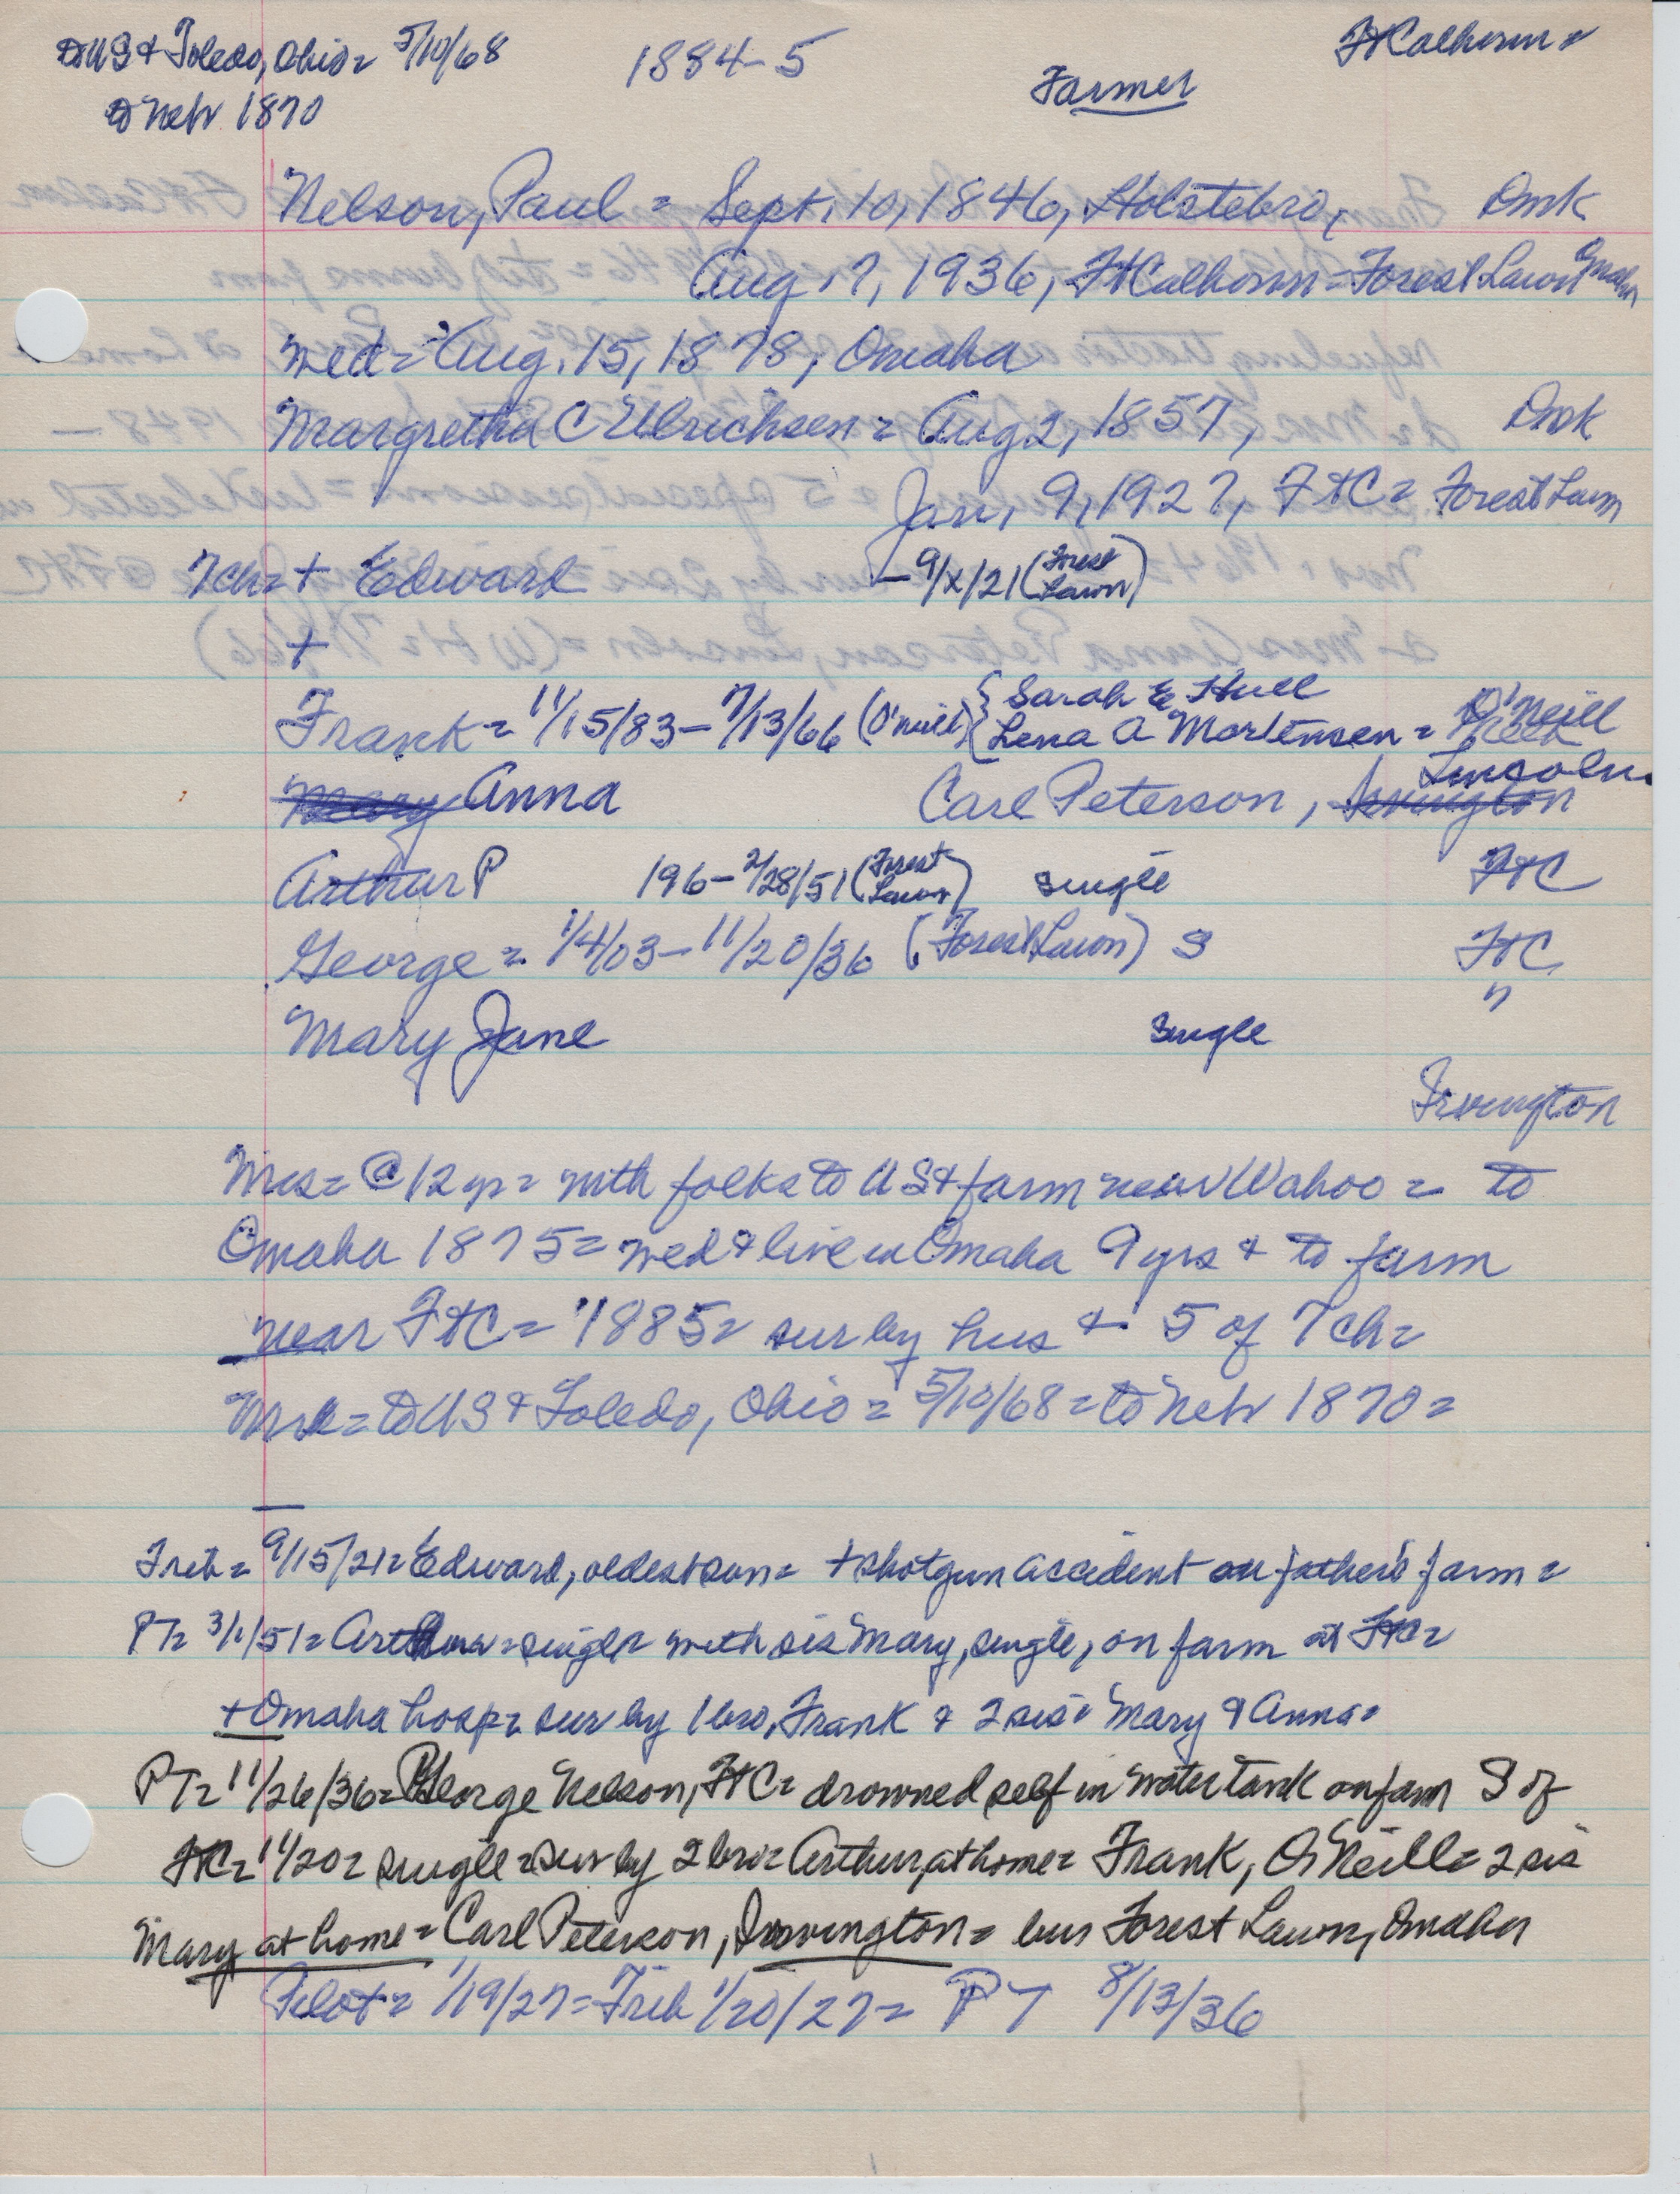 to US & Toledo, Ohio = 5/10/68 1884-5 Ft Calhoun =
to Neb 1870 Farmer
Nelson, Paul = Sept. 10, 1846, Holstebro, Dmk
Aug. 7, 1936, Ft Calhoun = Forest Lawn Omaha
wed = Aug. 15, 1878, Omaha
Margretha C Ulrichsen = Aug 2, 1857, Dmk
Jan, 9, 1927, FtC = Forest Lawn
7 ch = + Edward - 9/x/21 (Forest Lawn)
+
Frank = 11/15/83 - 7/13/66 (O'Neill) { Sarah E Hull
Lena A Mortensen = O'Neill
Mary Anna Carl Peterson, Irvington Lincoln
Arthur P 196 - 2/28/51 (Forest Lawn) single FtC
George = 1/4/03 - 11/20/36 (Forest Lawn) S FtC
Mary Jane single "
Irvington
Mrs = @ 12 yr = with folks to US & farm near Wahoo = to
Omaha 1875 = wed & live in Omaha 9 yrs & to farm
near FtC = 1885 = sur by hus & 5 of 7 ch =
Mr = to US & Toledo, Ohio = 5/10/68 = to Neb 1870 =
Trib = 9/15/21 = Edward, oldest son = + shotgun accident on father's farm =
PT = 3/1/51 = Arthur = single = with sis Mary, single, on farm at FtC =
+ Omaha hosp = sur by 1 bro, Frank & 2 sis = Mary & Anna =
PT = 11/26/36 = George Nelson, FtC = drowned self in water tank on farm S of
FtC = 11/20 = single = sur by 2 bro = Arthur, at home = Frank, O'Neill = 2 sis
Mary at home = Carl Peterson, Irvington = bur Forest Lawn, Omaha
Pilot = 1/19/27 = Trib 1/20/27 = PT 8/13/36